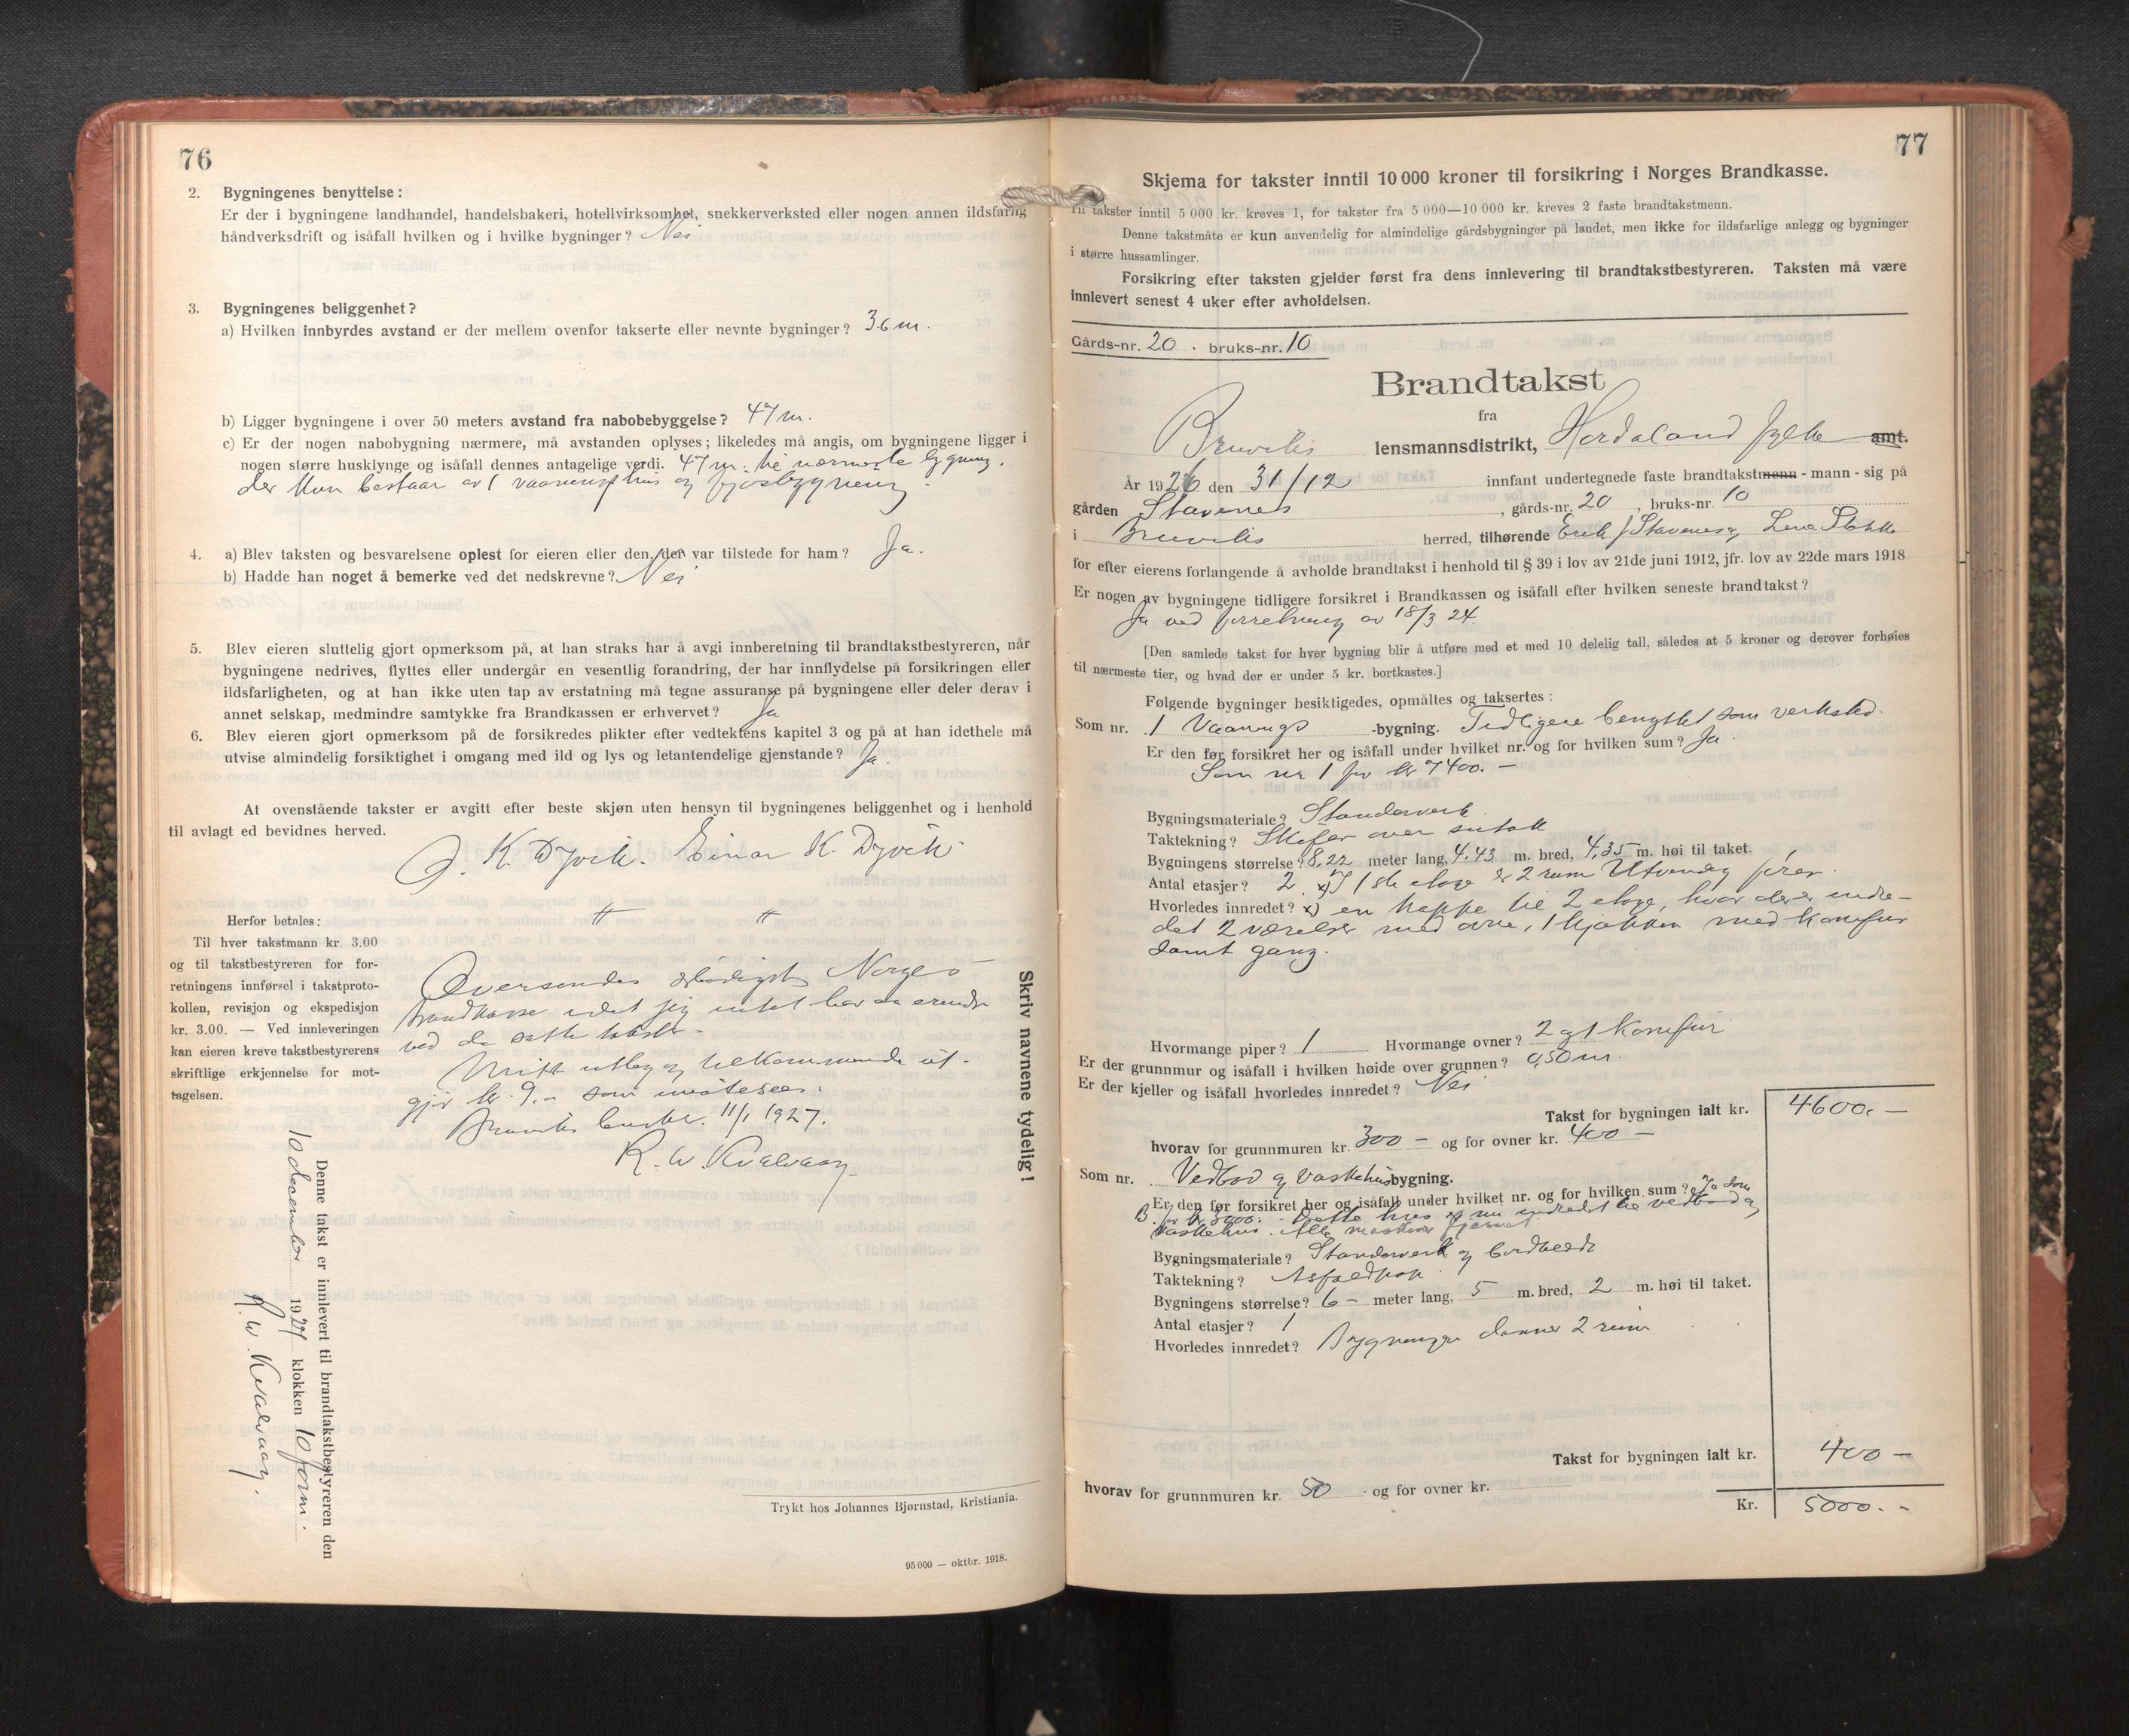 76
2. Bygningenes benyttelse:
Er der i bygningene landhandel, handelsbakeri, hotellvirksomhet, snekkerverksted eller nogen annen ildsfarlig
håndverksdrift og isåfall hvilken og i hvilke bygninger? Nei
3. Bygningenes beliggenhet?
a) Hvilken innbyrdes avstand er der mellem ovenfor takserte eller nevnte bygninger? 36 m.
b) Ligger bygningene i over 50 meters avstand fra nabobebyggelse? 47 m.
c) Er der nogen nabobygning nærmere, må avstanden oplyses; likeledes må angis, om bygningene ligger i
nogen større husklynge og isåfall dennes antagelige verdi. 47 m. til nærmeste bygning.
der kun bestaar av 1 vaaningshus og fjosbygning.
4. a) Blev taksten og besvarelsene oplest for eieren eller den, der var tilstede for ham? Ja.
b) Hadde han noget å bemerke ved det nedskrevne? Nei
5. Blev eieren sluttelig gjort opmerksom på, at han straks har å avgi innberetning til brandtakstbestyreren, når
bygningene nedrives, flyttes eller undergår en vesentlig forandring, der har innflydelse på forsikringen eller
ildsfarligheten, og at han ikke uten tap av erstatning må tegne assuranse på bygningene eller deler derav i
annet selskap, medmindre samtykke fra Brandkassen er erhvervet? Ja
6. Blev eieren gjort opmerksom på de forsikredes plikter efter vedtektens kapitel 3 og på at han idethele må
utvise almindelig forsiktighet i omgang med ild og lys og letantendelige gjenstande? Ja.
At ovenstående takster er avgitt efter beste skjøn uten hensyn til bygningenes beliggenhet og i henhold
til avlagt ed bevidnes herved.
J. K. Dyvik. Einar K. Dyvik
Herfor betales:
Til hver takstmann kr. 3.00
og til takstbestyreren for for-
retningens innførsel i takstproto-
kollen, revisjon og ekspedisjon
kr. 3.00. — Ved innleveringen
kan eieren kreve takstbestyrerens
skriftlige erkjennelse for mot-
tagelsen.
Oversendes ærbødigst Norges
Brandkasse idet jeg intet har aa erindre
ved de satte takster.
Mitt utlæg og tilkommende ut-
gjør kr. 9.00 som imøtesees.
Bruvik lensktr. 11/1 1927.
R. W. Kvalvaag
Skriv navnene tydelig!
Denne takst er innlevert til brandtakstbestyreren den
10 desember 1927 klokken 10 form.
R. W. Kvalvaag.
Trykt hos Johannes Bjørnstad, Kristiania.
95 000 — oktbr. 1918.
77
Skjema for takster inntil 10 000 kroner til forsikring i Norges Brandkasse.
Til takster inntil 5 000 kr. kreves 1, for takster fra 5 000—10 000 kr. kreves 2 faste brandtakstmenn.
Denne takstmåte er kun anvendelig for almindelige gårdsbygninger på landet, men ikke for ildsfarlige anlegg og bygninger
i større hussamlinger.
Forsikring efter taksten gjelder først fra dens innlevering til brandtakstbestyreren. Taksten må være
innlevert senest 4 uker efter avholdelsen.
Gårds-nr. 20. bruks-nr. 10
Brandtakst
fra
Bruviks lensmannsdistrikt, Hordaland fylke amt.
År 1926 den 31/12 innfant undertegnede faste brandtakstmenn - mann - sig på
gården Stavenes, gårds-nr. 20, bruks-nr. 10
i Bruviks herred, tilhørende Erik J Stavenes og Lena Stokke
for efter eierens forlangende å avholde brandtakst i henhold til § 39 i lov av 21de juni 1912, jfr. lov av 22de mars 1918
Er nogen av bygningene tidligere forsikret i Brandkassen og isåfall efter hvilken seneste brandtakst?
Ja ved forretning av 18/3 24.
[Den samlede takst for hver bygning blir å utføre med et med 10 delelig tall, således at 5 kroner og derover forhøies
til nærmeste tier, og hvad der er under 5 kr. bortkastes.]
Følgende bygninger besiktigedes, opmåltes og taksertes:
Som nr. 1 Vaanings -bygning. Tidligere benyttet som verksted.
Er den før forsikret her og isåfall under hvilket nr. og for hvilken sum? Ja.
Som nr 1 for kr 7400.-
Bygningsmateriale? Standerverk
Taktekning? Skifer over sutak
Bygningens størrelse? 8,22 meter lang, 4.43 m. bred, 4,35 m. høi til taket.
Antal etasjer? 2. x) I 1ste etage er 2 rum Utvendig fører
Hvorledes innredet? x) en trappe til 2 etage, hvor der er indre-
det 2 værelser med ovne, 1 kjøkken med komfur
samt gang.
Hvormange piper? 1 Hvormange ovner? 2 og 1 Komfur
Er der grunnmur og isåfall i hvilken høide over grunnen? 0,50 m.
Er der kjeller og isåfall hvorledes innredet? Nei
Takst for bygningen ialt kr. 4600.-
hvorav for grunnmuren kr. 300 - og for ovner kr. 400 -
Som nr. Vedbod og vaskehus bygning.
Er den før forsikret her og isåfall under hvilket nr. og for hvilken sum? Ja som
B. for kr. 3000.- Dette hus er nu indredet til vedbod og
vaskehus. Alle maskiner fjernet
Bygningsmateriale? Standerverk og bordklædt
Taktekning? Asfaltpap
Bygningens størrelse? 6 - meter lang, 5 m. bred, 2 m. høi til taket.
Antal etasjer? 1
Hvorledes innredet? Bygningen danner 2 rum
Takst for bygningen ialt kr. 400 -
hvorav for grunnmuren kr. 50 og for ovner kr.
Kr. 5000.-